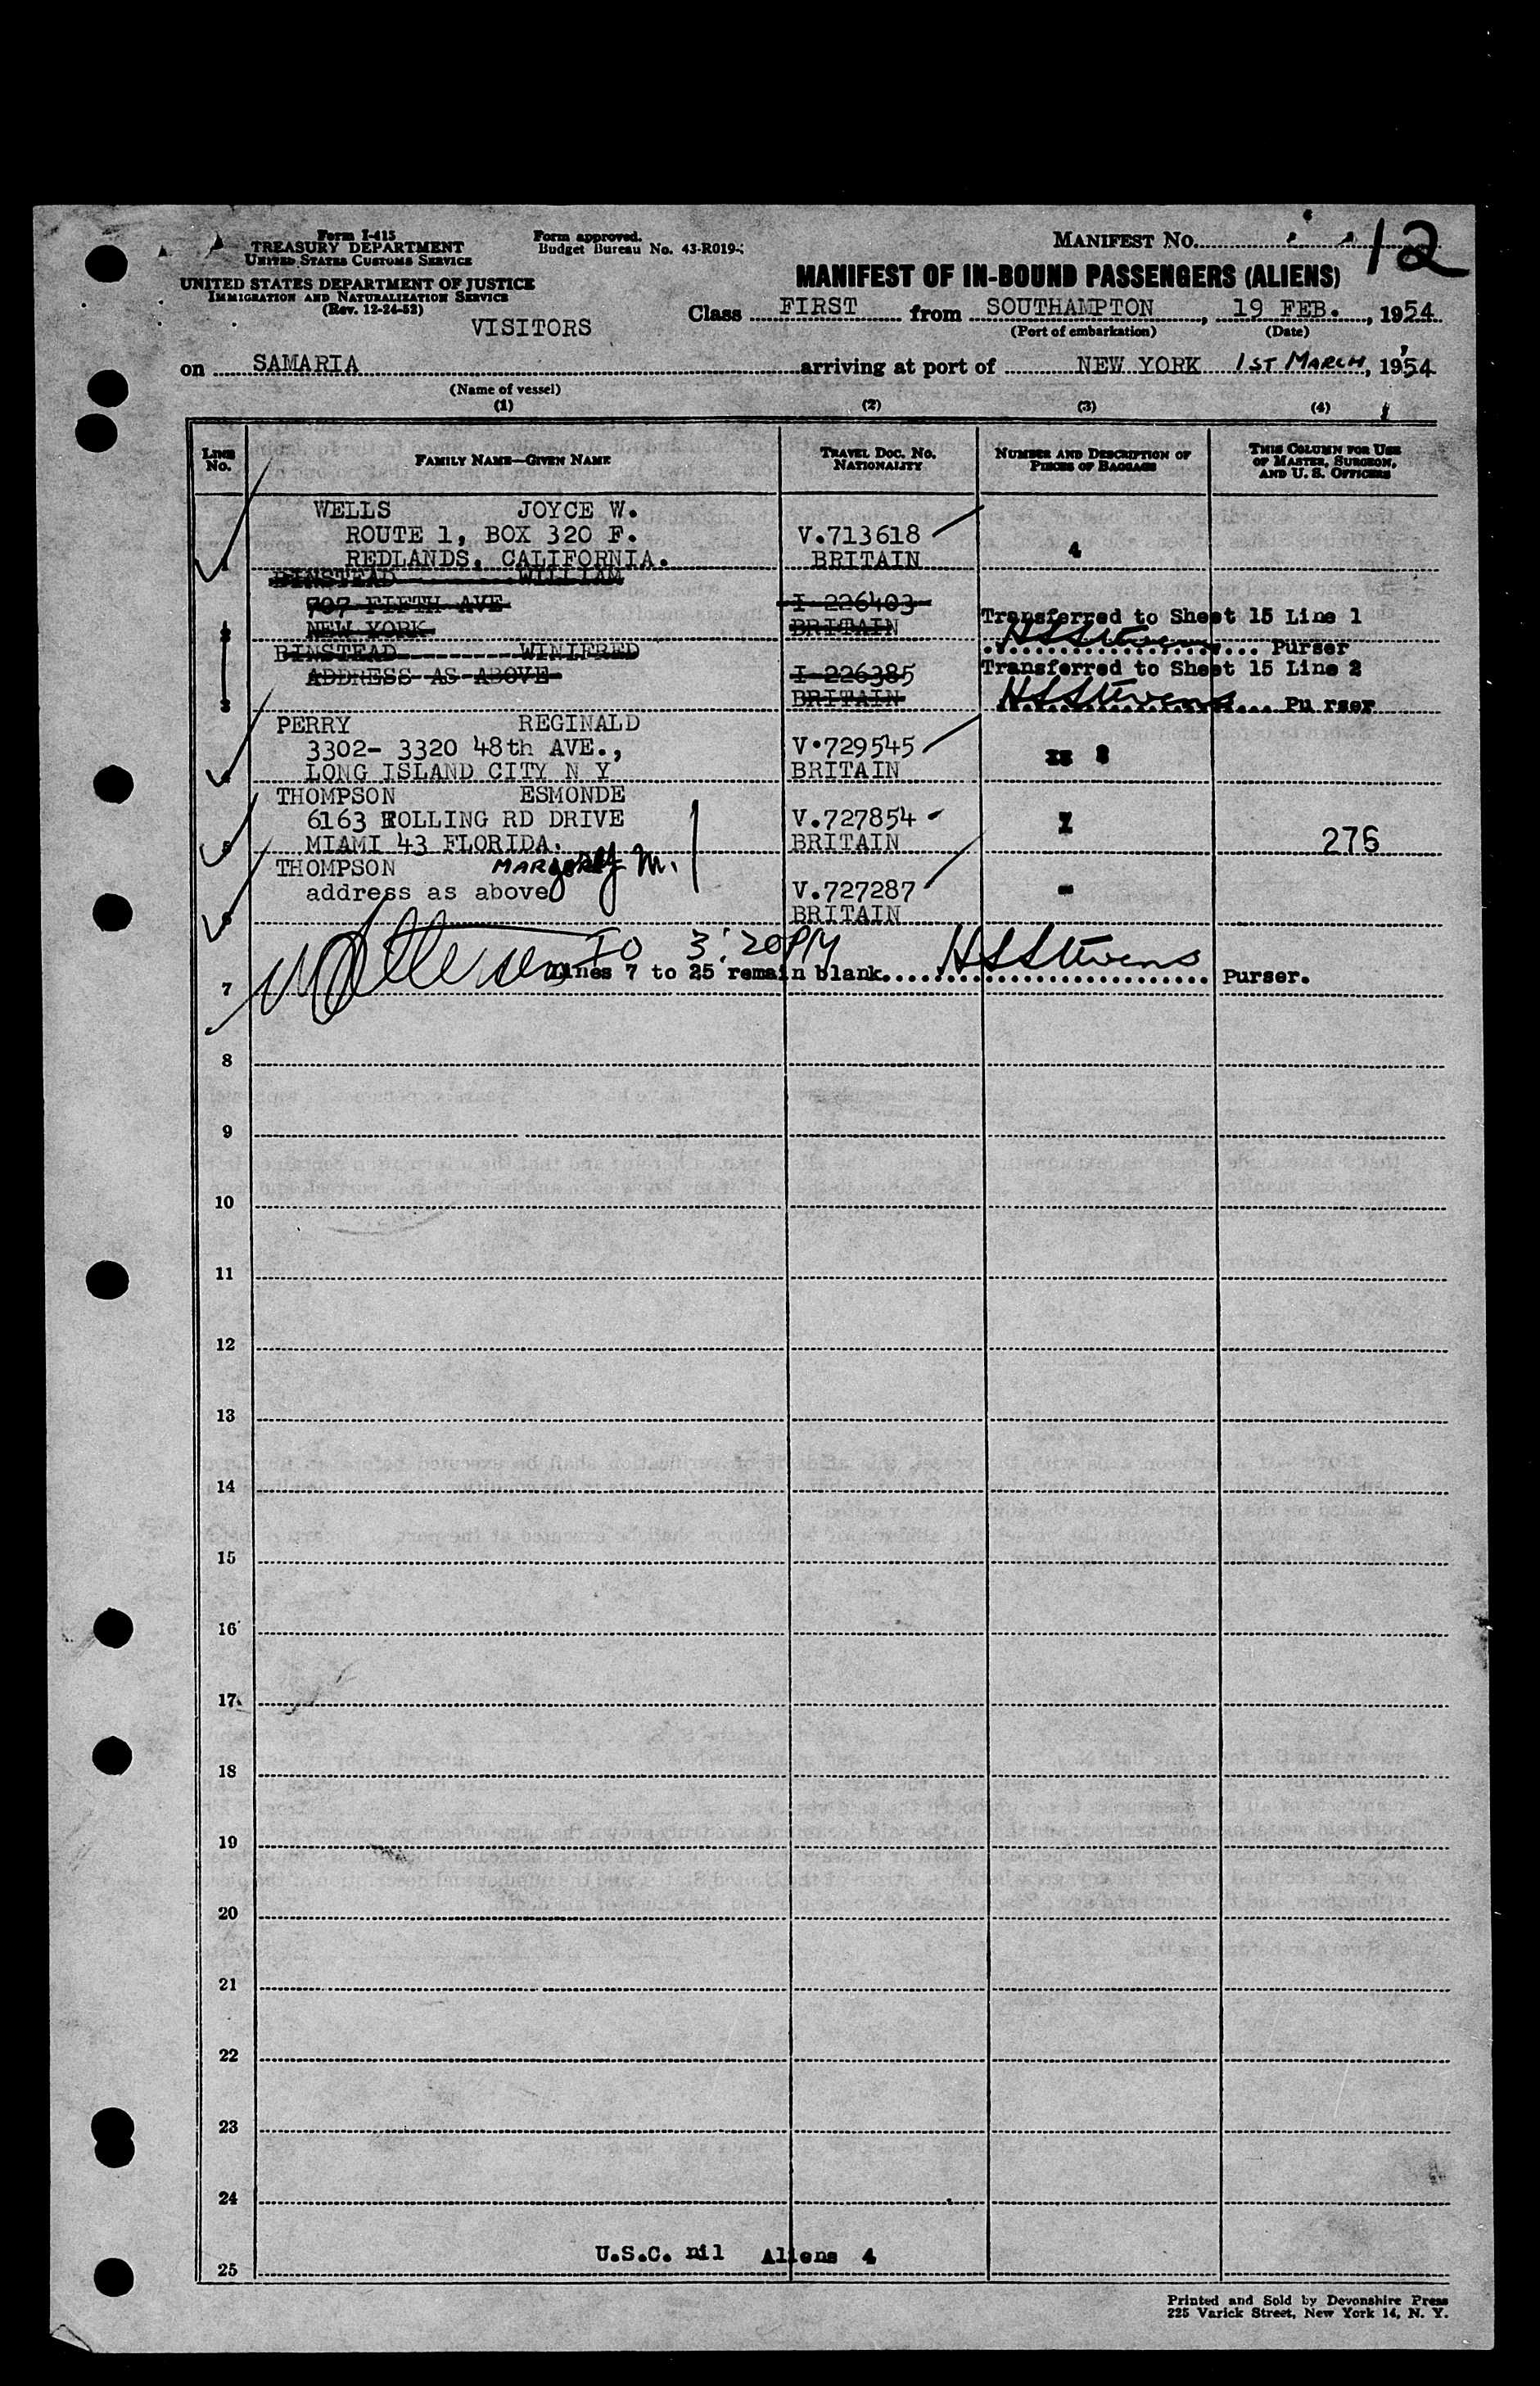 Form I-415
TREASURY DEPARTMENT
UNITED STATES CUSTOMS SERVICE
Form approved.
Budget Bureau No. 43-R019-
MANIFEST NO. 12
UNITED STATES DEPARTMENT OF JUSTICE
IMMIGRATION AND NATURALIZATION SERVICE
(Rev. 12-24-52)
MANIFEST OF IN-BOUND PASSENGERS (ALIENS)
VISITORS
Class FIRST from SOUTHAMPTON, 19 FEB., 1954
(Port of embarkation) (Date)
on SAMARIA arriving at port of NEW YORK 1ST MARCH, 1954
(Name of vessel)
(1) (2) (3) (4)
LINE No. FAMILY NAME—GIVEN NAME TRAVEL DOC. NO. NATIONALITY NUMBER AND DESCRIPTION OF PIECES OF BAGGAGE THIS COLUMN FOR USE OF MASTER, SURGEON, AND U. S. OFFICERS
WELLS JOYCE W.
ROUTE 1, BOX 320 F. V.713618 4
REDLANDS, CALIFORNIA. BRITAIN
BINSTEAD WILLIAM
707 FIFTH AVE I-226403 Transferred to Sheet 15 Line 1
2 NEW YORK BRITAIN HSStevens Purser
BINSTEAD WINIFRED
ADDRESS AS ABOVE I-226385 Transferred to Sheet 15 Line 2
3 BRITAIN HSStevens Purser
PERRY REGINALD
3302- 3320 48th AVE., V.729545
4 LONG ISLAND CITY N Y BRITAIN
THOMPSON ESMONDE
6163 ROLLING RD DRIVE V.727854
5 MIAMI 43 FLORIDA. BRITAIN 276
THOMPSON MARGERY M.
address as above V.727287 -
6 BRITAIN
IO 3:20PM
7 Lines 7 to 25 remain blank. HSStevens Purser.
8
9
10
11
12
13
14
15
16
17
18
19
20
21
22
23
24
U.S.C. nil Aliens 4
25
Printed and Sold by Devonshire Press
225 Varick Street, New York 14, N. Y.